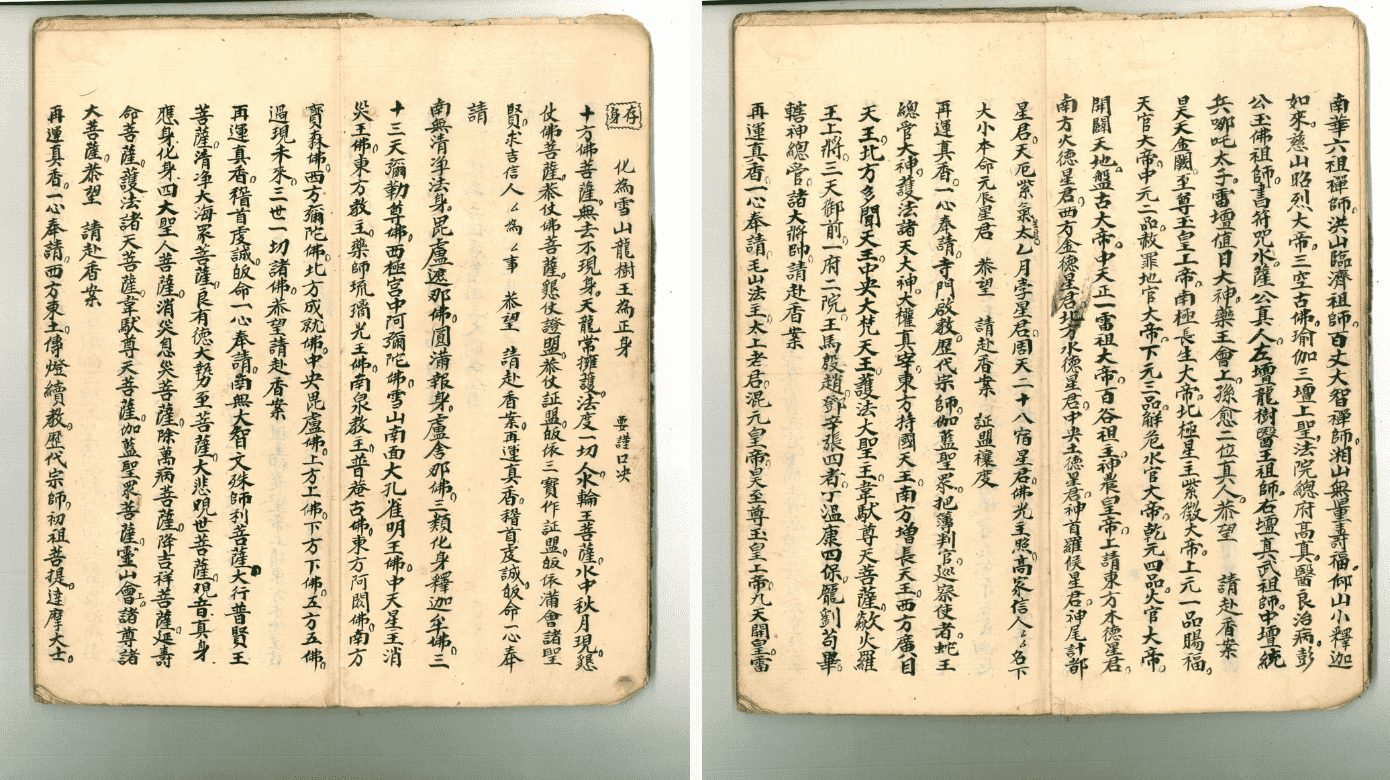 存身
化為雪山龍樹王為正身 要謹口决
十方佛菩薩無去不現身天龍常擁護法度一切 氽輪王菩薩水中秋月現懇
仗佛菩薩叅仗佛菩薩懇仗證盟叅仗証盟皈依三寶作証盟皈依滿會諸聖
賢求吉信人厶為厶事 恭望 請赴香案再運真香稽首虔誠皈命一心奉
請
南無清净法身毘盧遮那佛圓滿報身盧舍那佛三類化身釋迦牟佛三
十三天彌勒尊佛西極宮中阿彌陀佛雪山南面大孔雀明王佛中天星王消
災王佛東方教主藥師琉璃光王佛南泉教主普菴古佛東方阿閦佛南方
寶森佛西方彌陀佛北方成就佛中央毘盧佛上方上佛下方下佛五方五佛
過現未來三世一切諸佛恭望請赴香案
再運真香稽首虔誠皈命一心奉請南無大智文殊師利菩薩大行普賢王
菩薩清净大海眾菩薩良有德大勢至菩薩大悲覌世菩薩覌音真身
應身化身四大聖人菩薩消災息災菩薩除萬病菩薩降吉祥菩薩延壽
命菩薩護法諸天菩薩韋馱尊天菩薩伽藍聖眾菩薩靈山會上諸尊諸
大菩薩恭望 請赴香案
再運真香一心奉請西方東土傳燈續教歷代宗師初祖菩提達摩大士
南華六祖禪師洪山臨濟祖師百丈大智禪師湘山無量壽福仰山小釋迦
如來慈山昭烈大帝三空古佛瑜伽三壇上聖法院總府高真醫良治病彭
公玉佛祖師書符咒水薩公真人左壇龍樹醫王祖師右壇真武祖師中壇統
兵哪吒太子雷壇值日大神藥王會上孫愈二位真人恭望 請赴香案
昊天金闕至尊玉皇上帝南極長生大帝北極星主紫微大帝上元一品賜福
天官大帝中元二品赦罪地官大帝下元三品解危水官大帝乾元四品火官大帝
開闢天地盤古大帝中天正一雷祖大帝百谷祖主神農皇帝上請東方木德星君
南方火德星君西方金德星君北方水德星君中央土德星君神首羅候星君神尾計都
星君天厄紫氣太乙月孛星君周天二十八宿星君佛光主照高家信人厶名下
大小本命元辰星君 恭望 請赴香案 証盟禳度
再運真香一心奉請寺門啟教歷代宗師伽藍聖眾把簿判官巡察使者蛇王
總管大神護法諸天大神大權真宰東方持國天王南方增長天王西方廣目
天王北方多聞天王中央大梵天王護法大聖王韋馱尊天菩薩歘火羅
王上將三天御前一府二院王馬殷趙鄧辛張四者丁溫康四保龐劉苟畢
轄神總管諸大將帥請赴香案
再運真香一心奉請毛山法主太上老君混元皇帝昊至尊玉皇上帝九天開皇雷